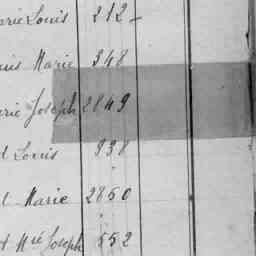 arie Louis 212 -
uis Marie 348
rie Joseph 2849
d Louis 938
d Marie 2850
t Mie Joseph 552